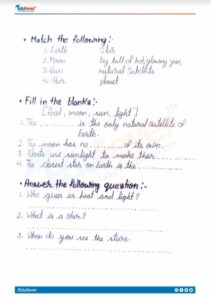 Edufever
• Match the following :-
1. Earth Star
2. Moon big ball of hot glowing gas,
3. Sun natural Satellite
4. Star planet
• Fill in the blanks:-
[food, moon, sun, light]
1. The ............ is the only natural Satellite of
Earth.
2. The moon has no ............ of its own.
3. Plants use sunlight to make their ............
4. The closest star on Earth is the ............
• Answer the following question:-
1. Who gives us heat and light?
2. What is a Star?
3. When do you see the stars
/Edufever